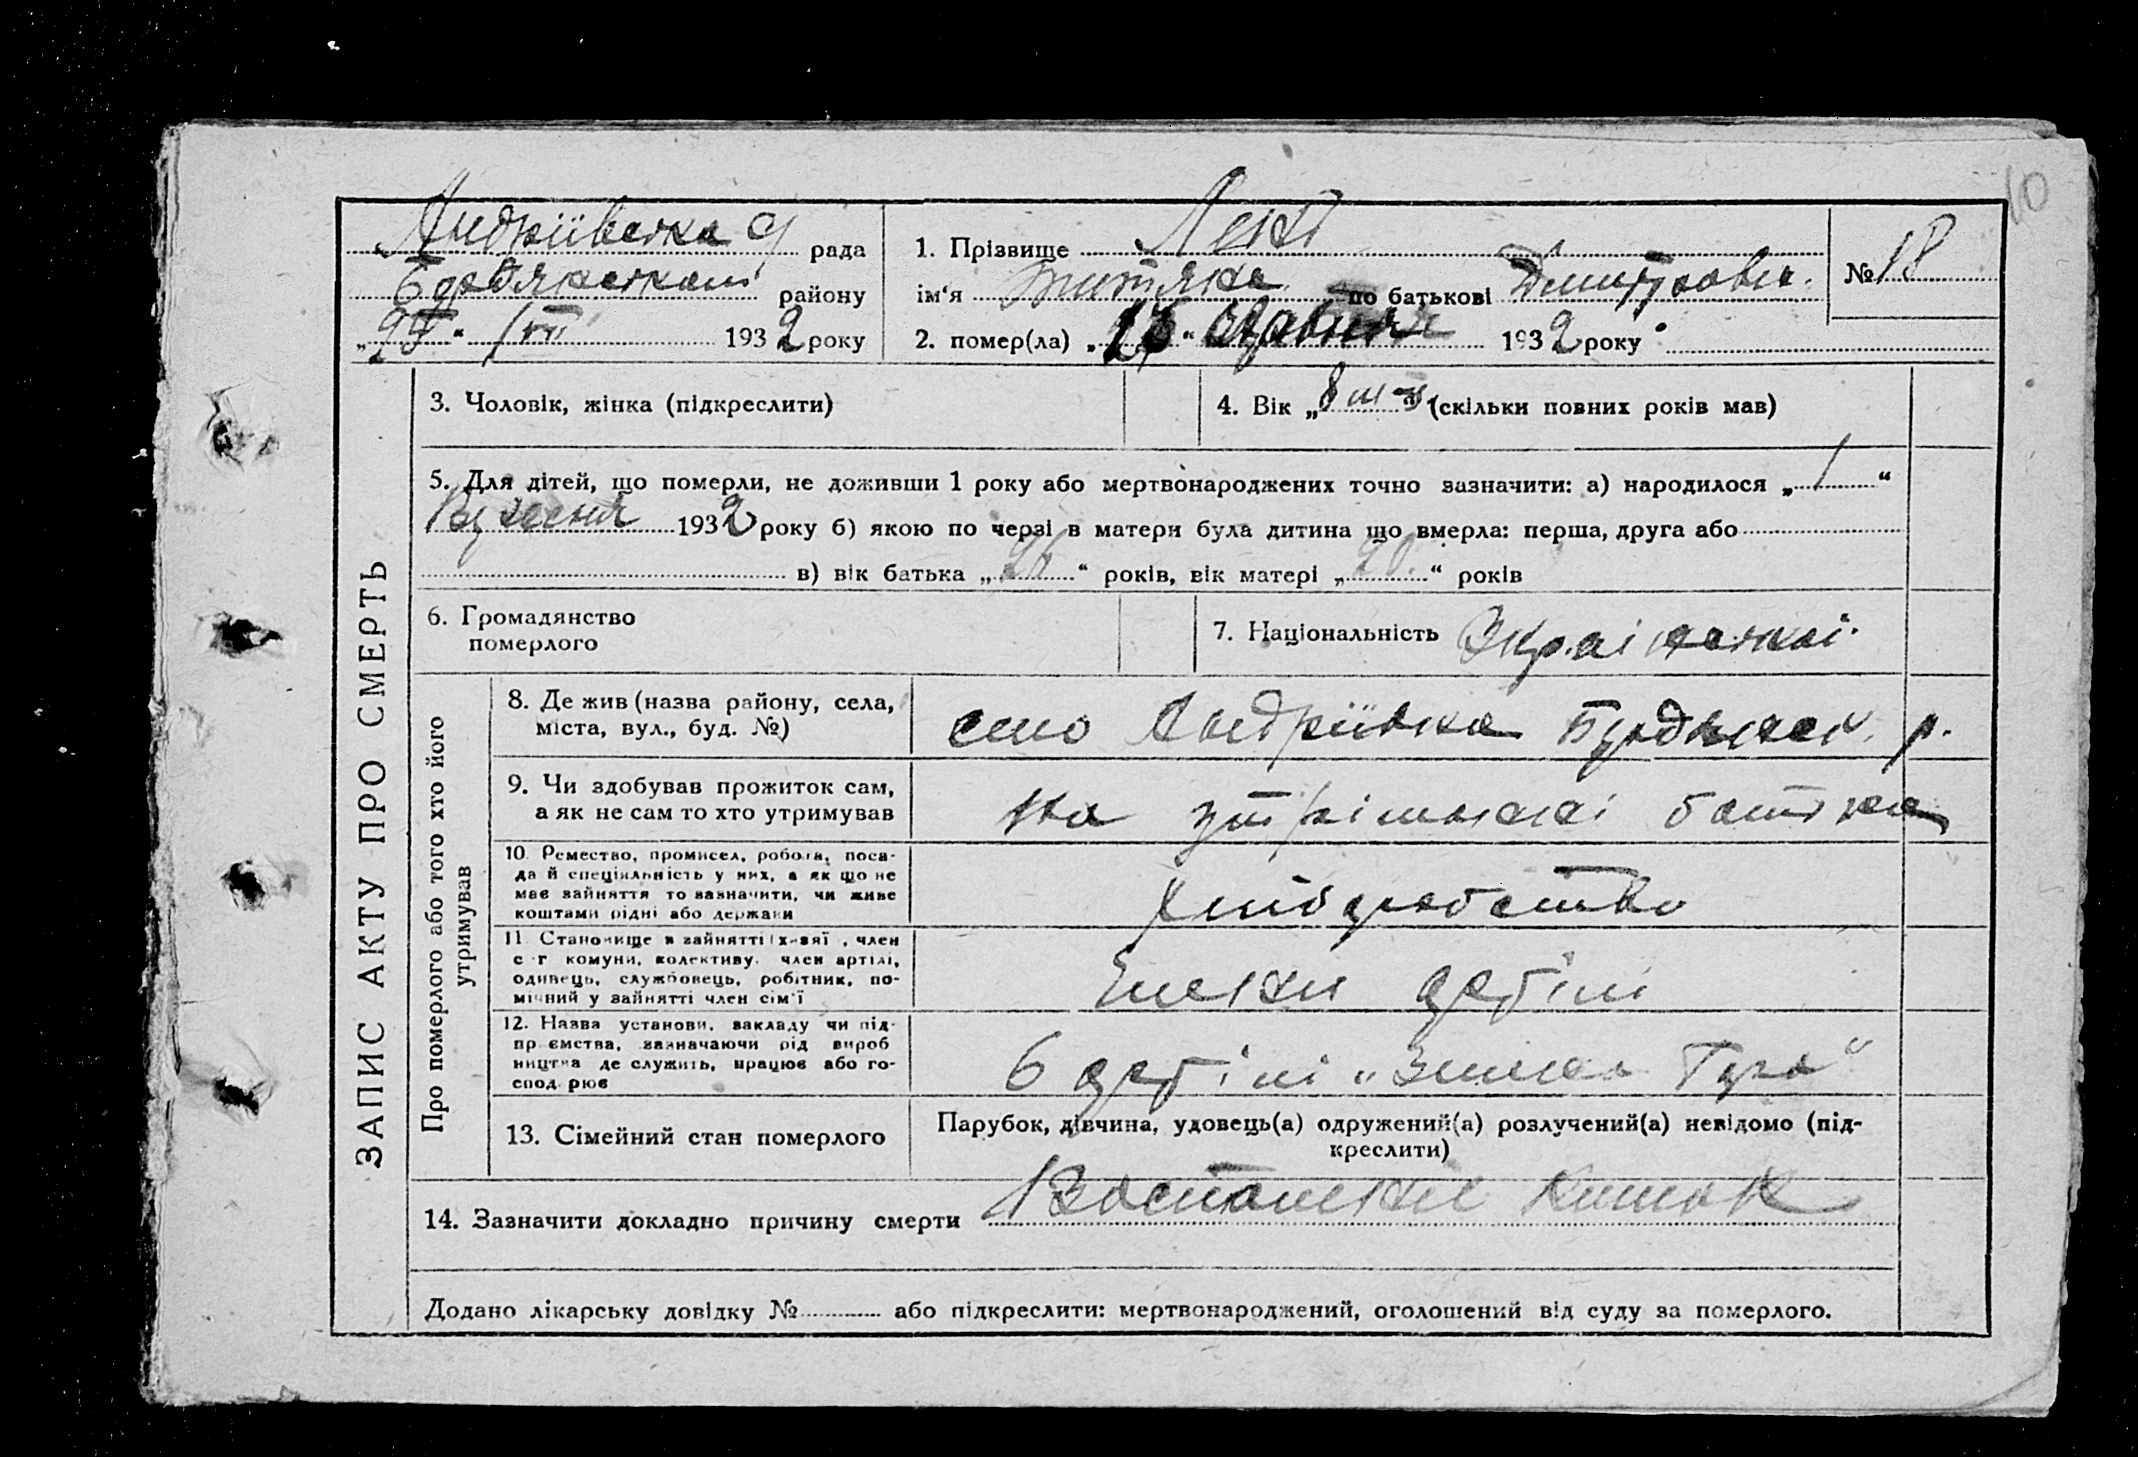 10
Андріівська с/ рада
району
193 2 року
1. Прізвище
№ 18
ім'я по батькові
2. помер(ла) „ “ 193 2 року
ЗАПИС АКТУ ПРО СМЕРТЬ
3. Чоловік, жінка (підкреслити)
4. Вік „ 8 “ (скільки повних років мав)
5. Для дітей, що померли, не доживши 1 року або мертвонароджених точно зазначити: а) народилося „ 1 “
193 2 року б) якою по черзі в матери була дитина що вмерла: перша, друга або
в) вік батька „ “ років, вік матері „ “ років
6. Громадянство
померлого
7. Національність
Про померлого або того хто його
утримував
8. Де жив (назва району, села,
міста, вул., буд. №)
село Андріівка Бердянськ. р.
9. Чи здобував прожиток сам,
а як не сам то хто утримував
на утріманні батька
10. Ремество, промисел, робота, поса-
да й спеціяльність у них, а як що не
має зайняття то зазначити, чи живе
коштами рідні або держави
хліборобство
11. Становище в зайнятті член
с-г комуни, колективу, член артілі,
одинець, службовець, робітник, по-
мічний у зайнятті член сім'ї
член артілі
12. Назва установи, закладу чи під-
приємства, зазначаючи рід вироб
ництва де служить, працює або го-
сподарює
в артілі „
13. Сімейний стан померлого
Парубок, дівчина, удовець(а) одружений(а) розлучений(а) невідомо (під-
креслити)
14. Зазначити докладно причину смерти
Додано лікарську довідку № або підкреслити: мертвонароджений, оголошений від суду за померлого.